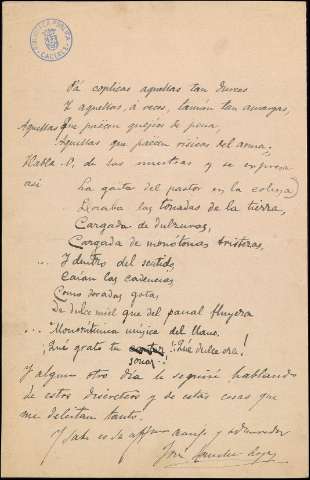 BIBLIOTECA PUBLICA
CACERES
Pá coplicas aquellas tan durces
Y aquellas, á veces, tamién tan amargas,
Aquellas que paecen quejíos de pena,
Aquellas que paecen risicas del arma;
Habla V. de las nuestras y se expresa
así La gaita del pastor en la colina
Lloraba las tonadas de la tierra,
Cargada de dulzuras,
Cargada de monótonas tristezas,
... Y dentro del sentido
Caían las cadencias
Como doradas gotas
De dulce miel que del panal fluyera
... Monorrítmica música del llano.
¡Qué grato tu
sonar! ¡Qué dulce era!
Y algún otro día le seguiré hablando
de estos discreteos y de estas cosas que
me deleitan tanto.
Y sabe es su affmo amigo y admirador
José Sánchez